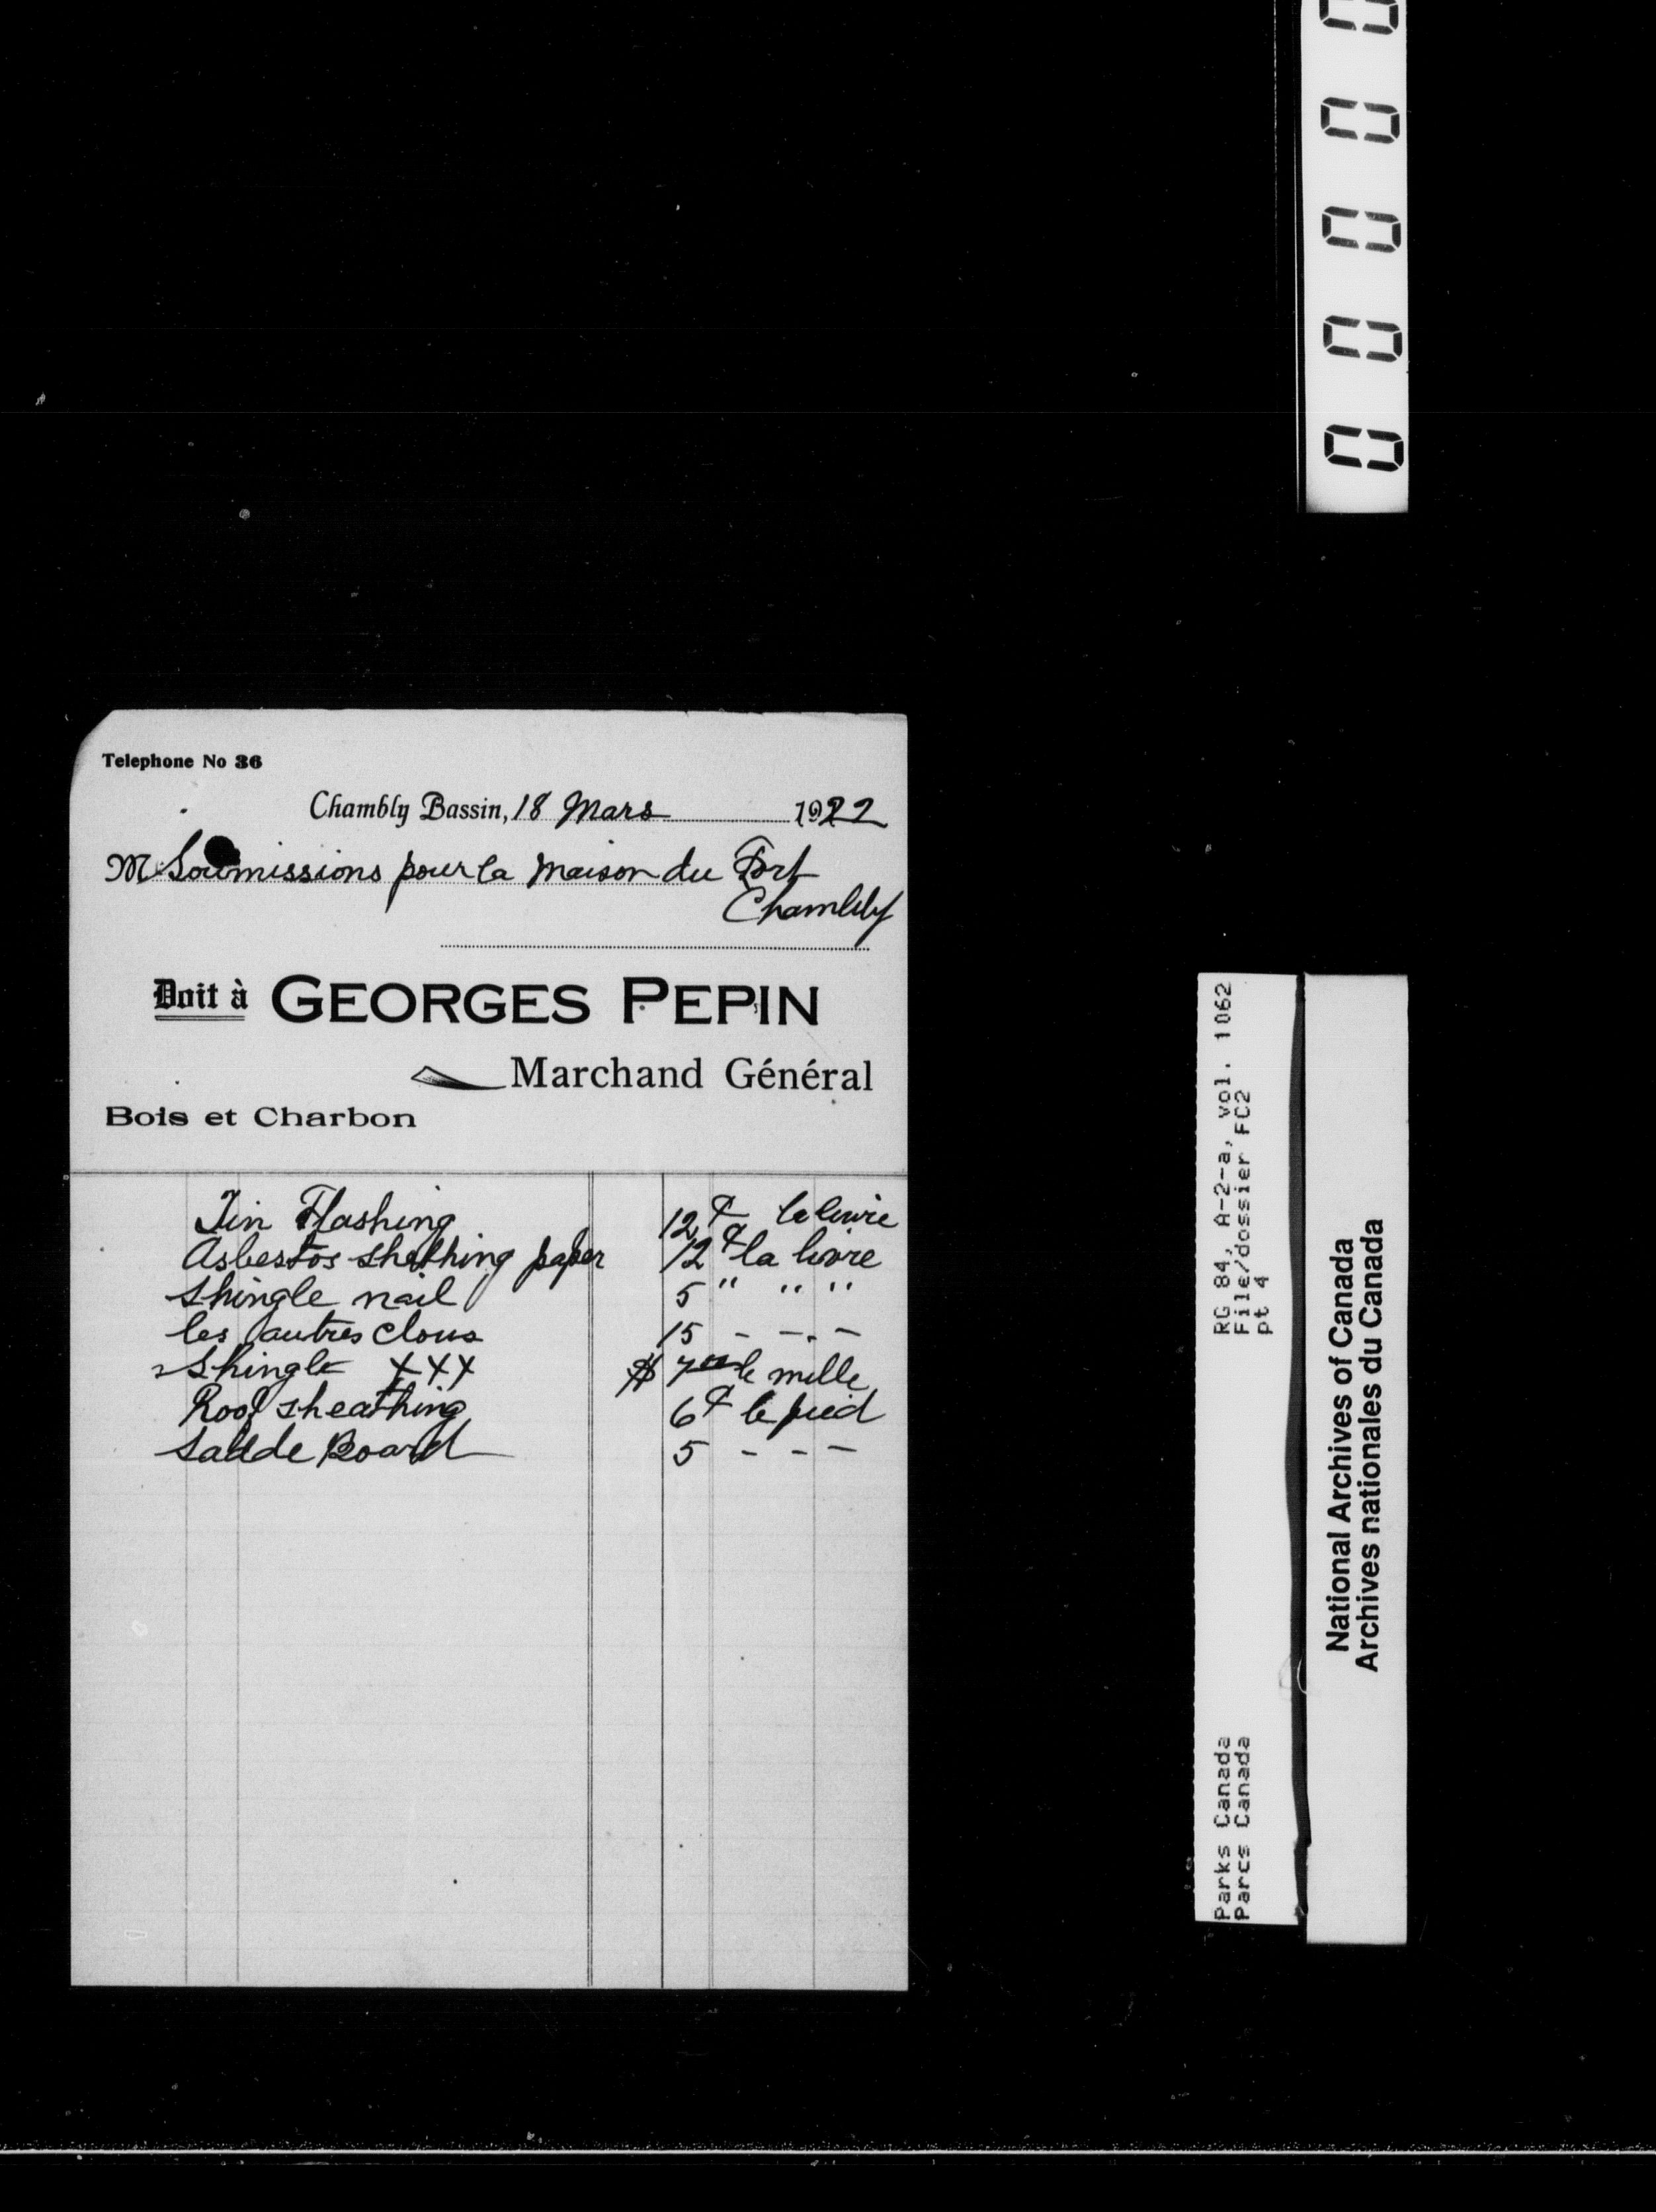 Telephone No 36
Chambly Bassin, 18 Mars 1922
M Soumissions pour la Maison du Fort
Chambly
Doit à GEORGES PEPIN
Marchand Général
Bois et Charbon
Tin Flashing 12¢ la livre
Asbestos shething paper 12¢ la livre
Shingle nail 5 " " "
les autres clous 15 - - -
Shingle XXX $7 00 le mille
Roof sheathing 6¢ le pied
Board 5 - - -
0 0 0 0 0
RG 84, A-2-a, vol. 1062
File/dossier FC2
pt 4
Parks Canada
Parcs Canada
National Archives of Canada
Archives nationales du Canada